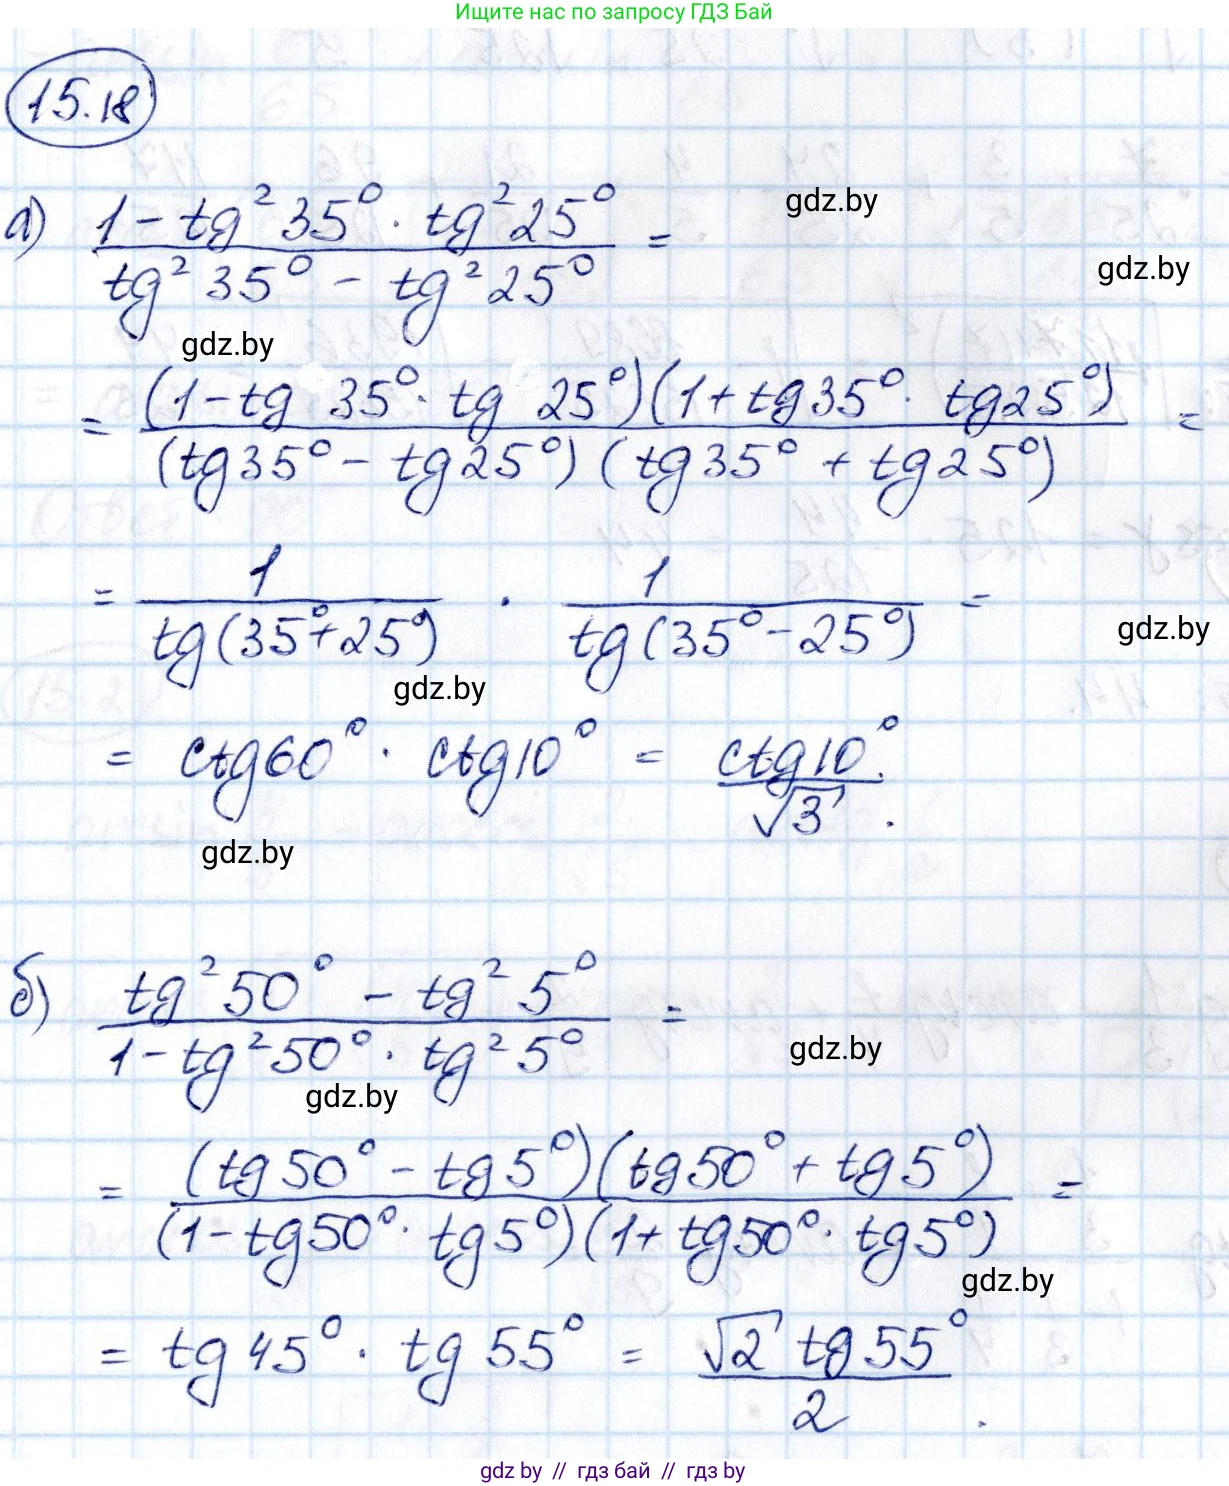 Ищите нас по запросу ГДЗ Бай
15.18
а) (1 - tg²35° · tg²25°) / (tg²35° - tg²25°) =
gdz.by
gdz.by
gdz.by
= ((1 - tg 35° · tg 25°)(1 + tg35° · tg25°)) / ((tg35° - tg25°)(tg35° + tg25°)) =
= 1 / tg(35°+25°) · 1 / tg(35° - 25°) =
gdz.by
gdz.by
= ctg60° · ctg10° = ctg10° / √3 .
gdz.by
б) (tg²50° - tg²5°) / (1 - tg²50° · tg²5°) =
gdz.by
gdz.by
= ((tg50° - tg5°)(tg50° + tg5°)) / ((1 - tg50° · tg5°)(1 + tg50° · tg5°)) =
gdz.by
= tg45° · tg55° = √2 tg55° / 2 .
gdz.by // гдз бай // gdz by